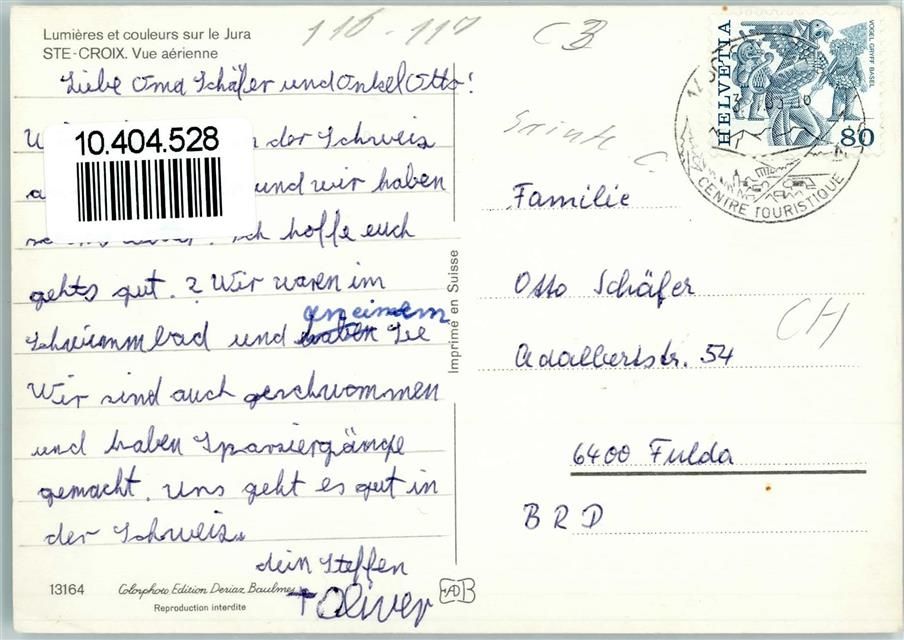 Lumières et couleurs sur le Jura
STE-CROIX. Vue aérienne
Liebe Oma Schäfer und Onkel Otto!
10.404.528
der Schweiz
und wir haben
Ich hoffe euch
gehts gut. ? Wir waren im
Schwimmbad und an einem See
Wir sind auch geschwommen
und haben Sparziergänge
gemacht. Uns geht es gut in
der Schweiz.
dein Steffen
+ Oliver
13164
Colorphoto Edition Deriaz Baulmes
Reproduction interdite
Imprimé en Suisse
116-117
CH
HELVETIA
VOGEL GRYFF BASEL
80
CENTRE TOURISTIQUE
Familie
Otto Schäfer
Adalbertstr. 54
6400 Fulda
BRD